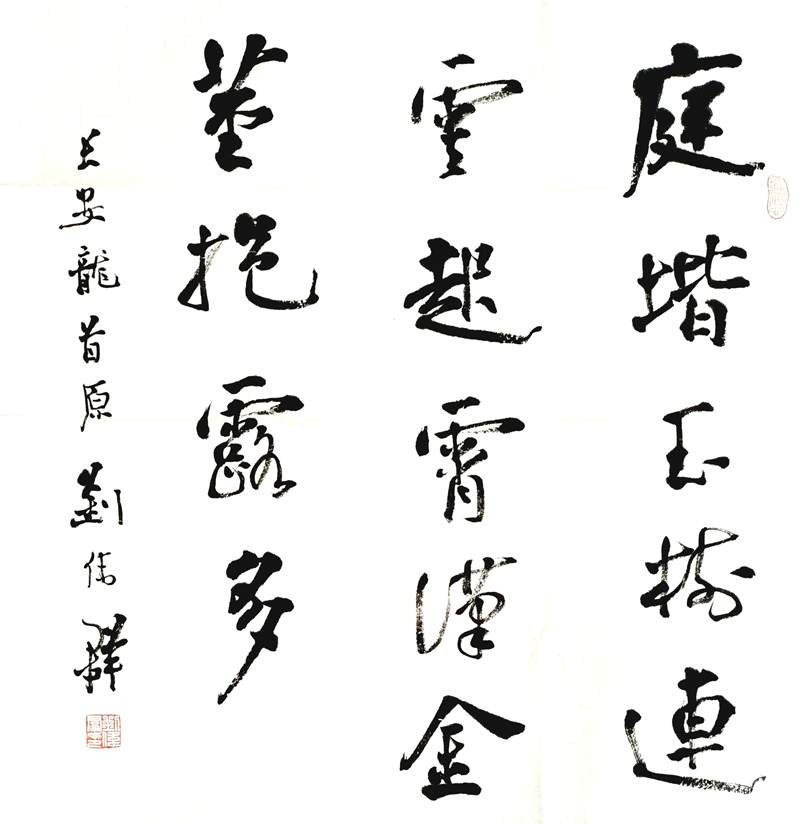 庭堦玉樹連
雲起霄漢金
莖挹露多
長安龍首原劉偉